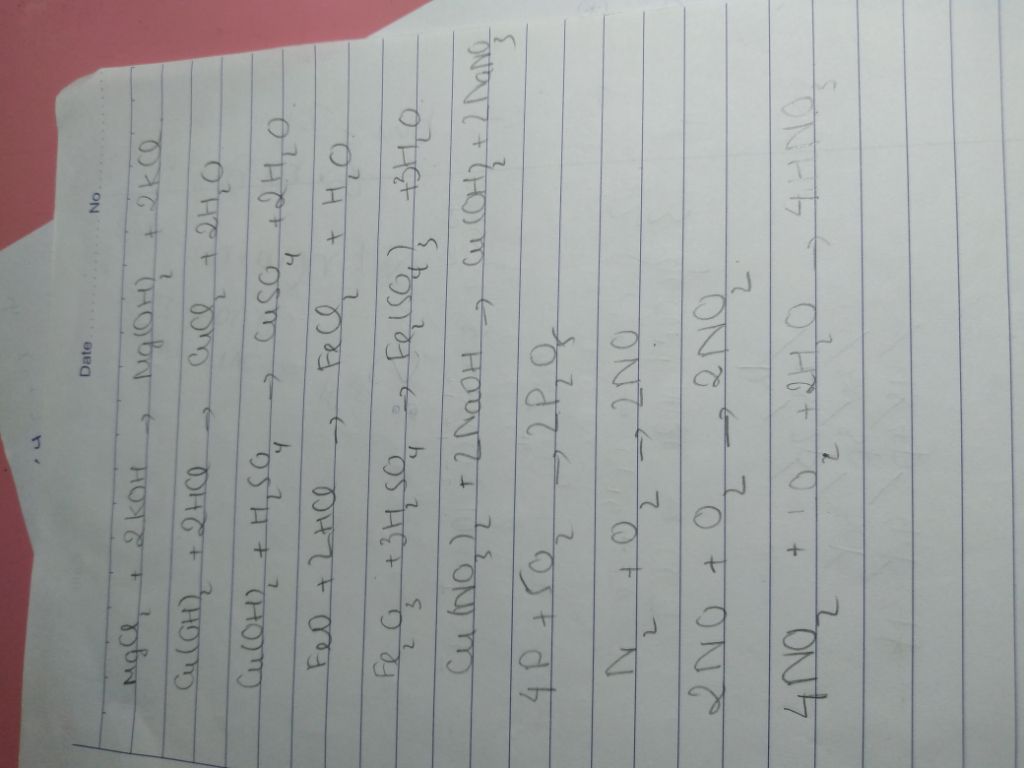 Date No
MgCl2 + 2KOH → Mg(OH)2 + 2KCl
Cu(OH)2 + 2HCl → CuCl2 + 2H2O
Cu(OH)2 + H2SO4 → CuSO4 + 2H2O
FeO + 2HCl → FeCl2 + H2O
Fe2O3 + 3H2SO4 → Fe2(SO4)3 + 3H2O
Cu(NO3)2 + 2NaOH → Cu(OH)2 + 2NaNO3
4P + 5O2 → 2P2O5
N2 + O2 → 2NO
2NO + O2 → 2NO2
4NO2 + O2 + 2H2O → 4HNO3